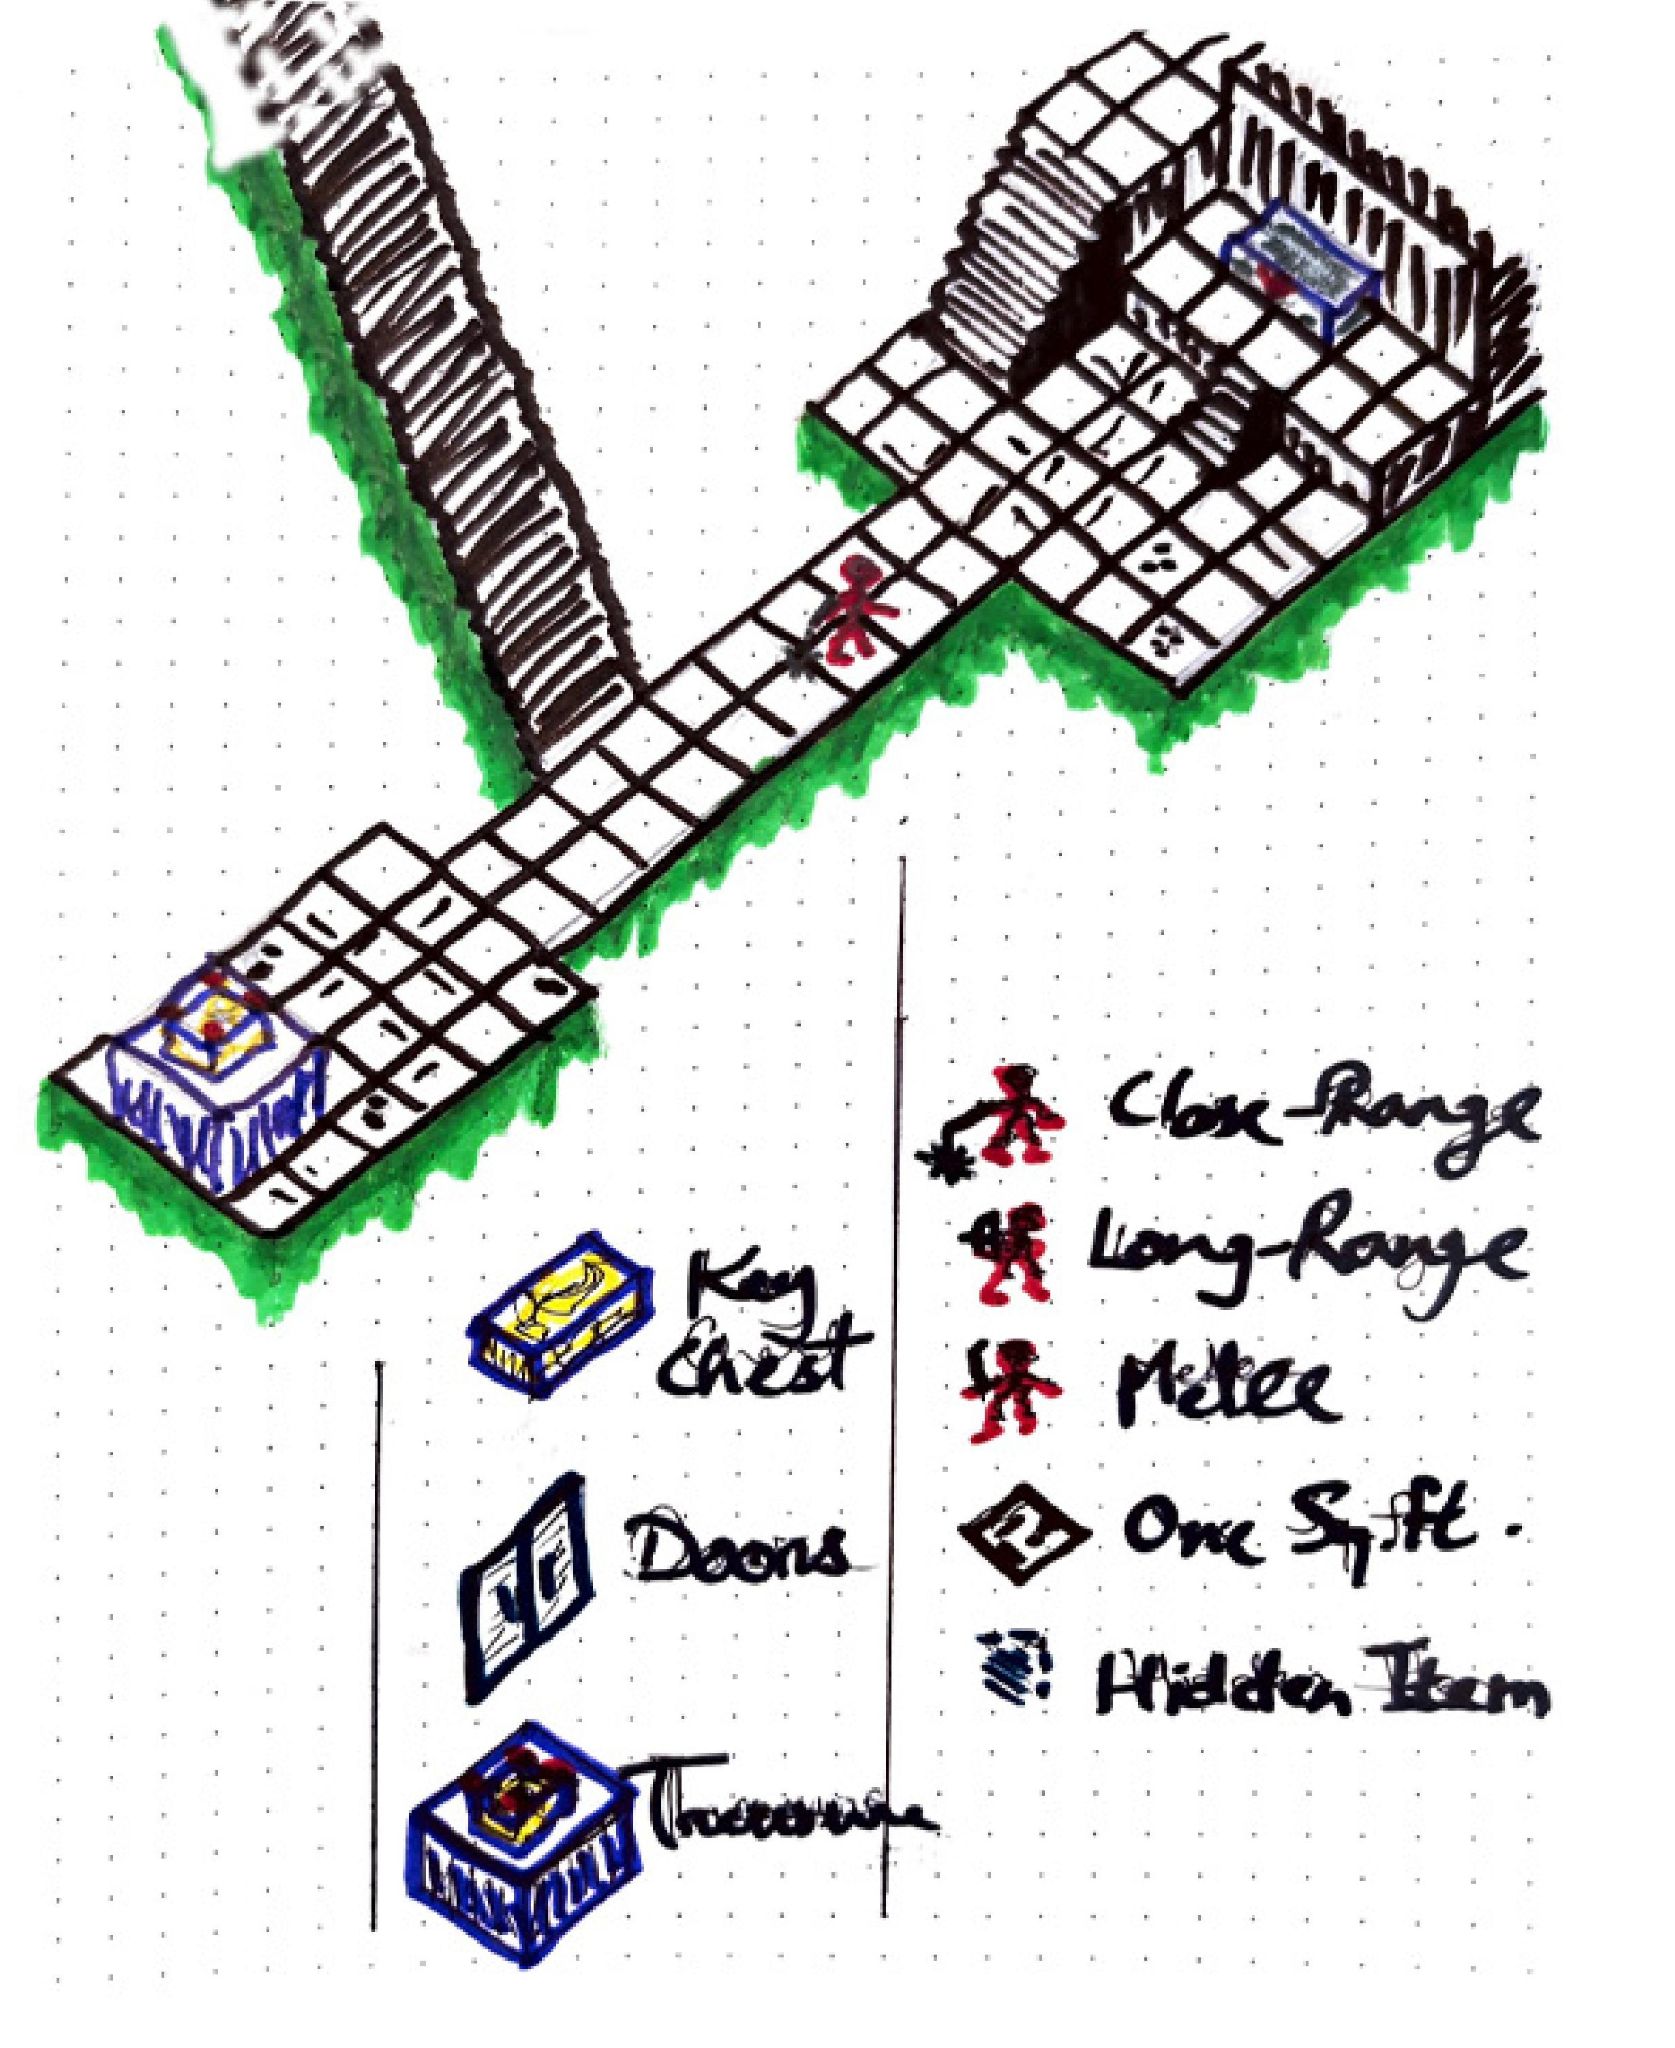 Key
Chest
Doors
Treasure
Close-Range
Long-Range
Melee
One Sq.ft.
Hidden Item